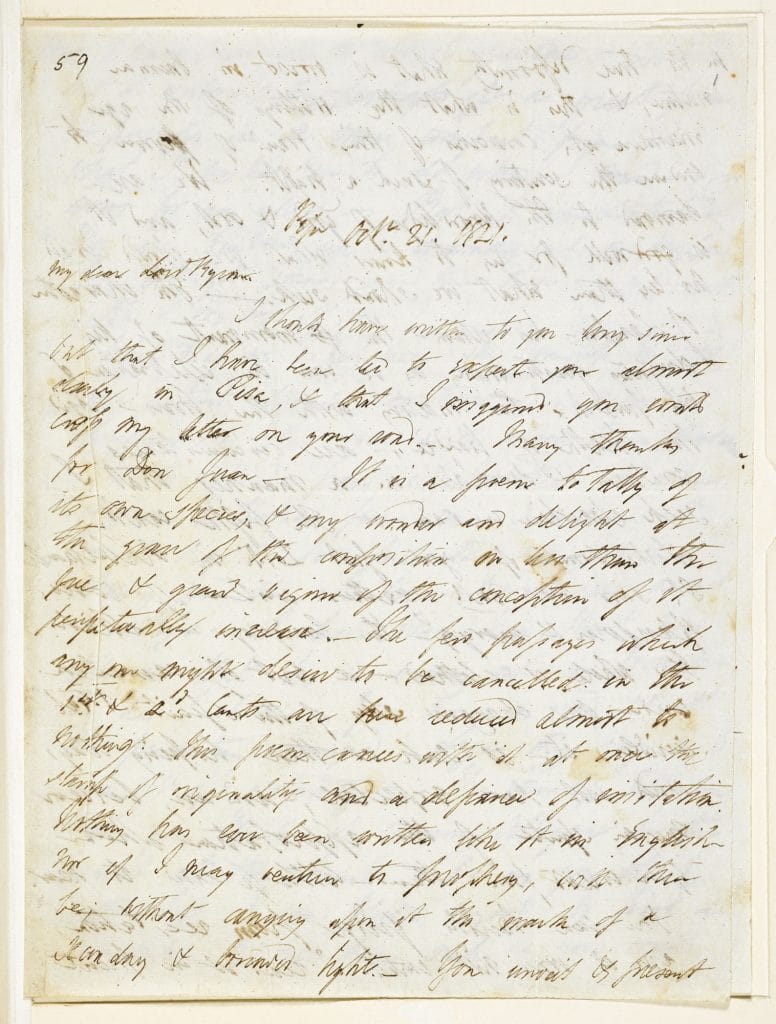 59
Pisa Oct. 21. 1821.
My dear Lord Byron
I should have written to you long since
but that I have been led to expect you almost
daily in Pisa, & that I imagined you would
cross my letter on your road. — Many thanks
for Don Juan — It is a poem totally of
its own species, & my wonder and delight at
the grace of the composition no less than the
free & grand vigour of the conception of it
perpetually increase. — The few passages which
any one might desire to be cancelled in the
1st & 2d Cantos are here reduced almost to
nothing. This poem carries with it at once the
stamp of originality and a defiance of imitation.
Nothing has ever been written like it in English —
nor if I may venture to prophesy, will there
be; without carrying upon it the mark of a
secondary & borrowed light. — You unveil & present